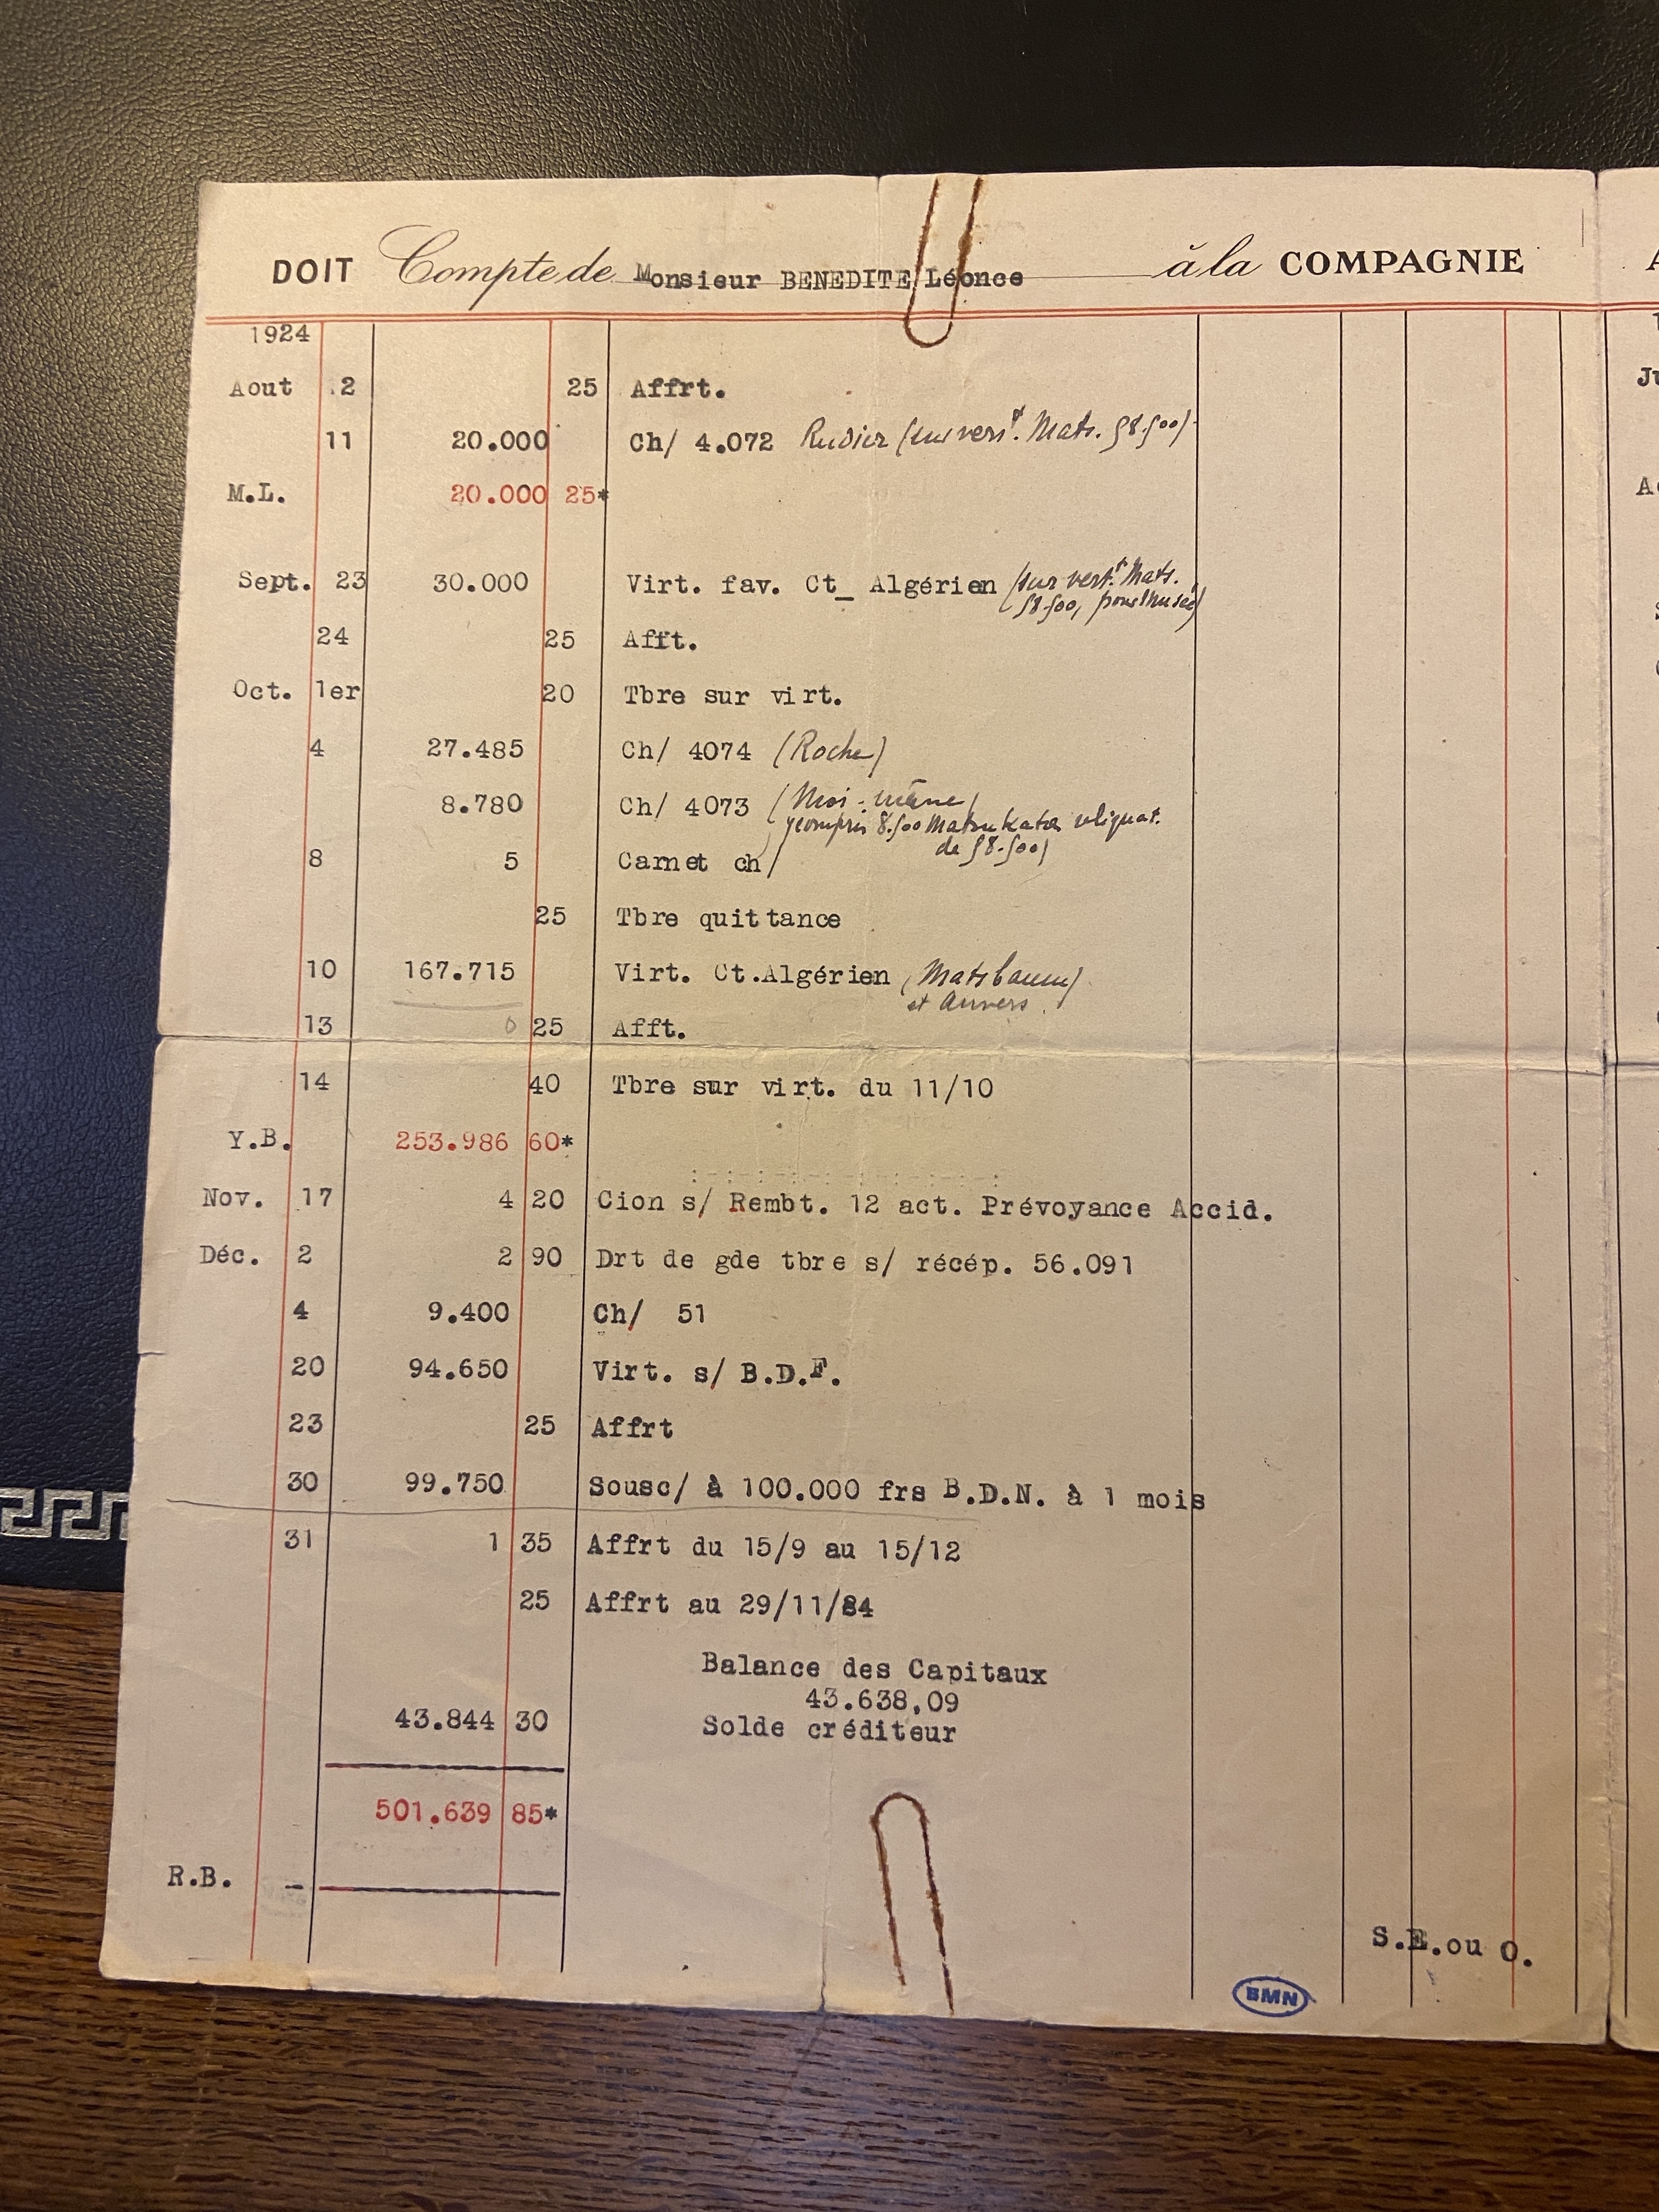 DOIT Compte de Monsieur BENEDITE Léonce à la COMPAGNIE
1924
Aout 2 25 Affrt.
11 20.000 Ch/ 4.072 Rudier (sur verst. Mats. 58.500)
M.L. 20.000 25*
Sept. 23 30.000 Virt. fav. Ct_ Algérien (sur vert. Mats.
58.500, pour Musée)
24 25 Afft.
Oct. 1er 20 Tbre sur virt.
4 27.485 Ch/ 4074 (Roche)
8.780 Ch/ 4073 (Moi-même)
y compris 8.500 Matsukata reliquat.
de 58.500)
8 5 Carnet ch/
25 Tbre quittance
10 167.715 Virt. Ct.Algérien (Matsbaum)
et Anvers.
13 0 25 Afft.
14 40 Tbre sur virt. du 11/10
Y.B. 253.986 60*
Nov. 17 4 20 Cion s/ Rembt. 12 act. Prévoyance Accid.
Déc. 2 2 90 Drt de gde tbre s/ récép. 56.091
4 9.400 Ch/ 51
20 94.650 Virt. s/ B.D.F.
23 25 Affrt
30 99.750 Sousc/ à 100.000 frs B.D.N. à 1 mois
31 1 35 Affrt du 15/9 au 15/12
25 Affrt au 29/11/84
Balance des Capitaux
43.638,09
43.844 30 Solde créditeur
501.639 85*
R.B. -
S.E.ou O.
BMN